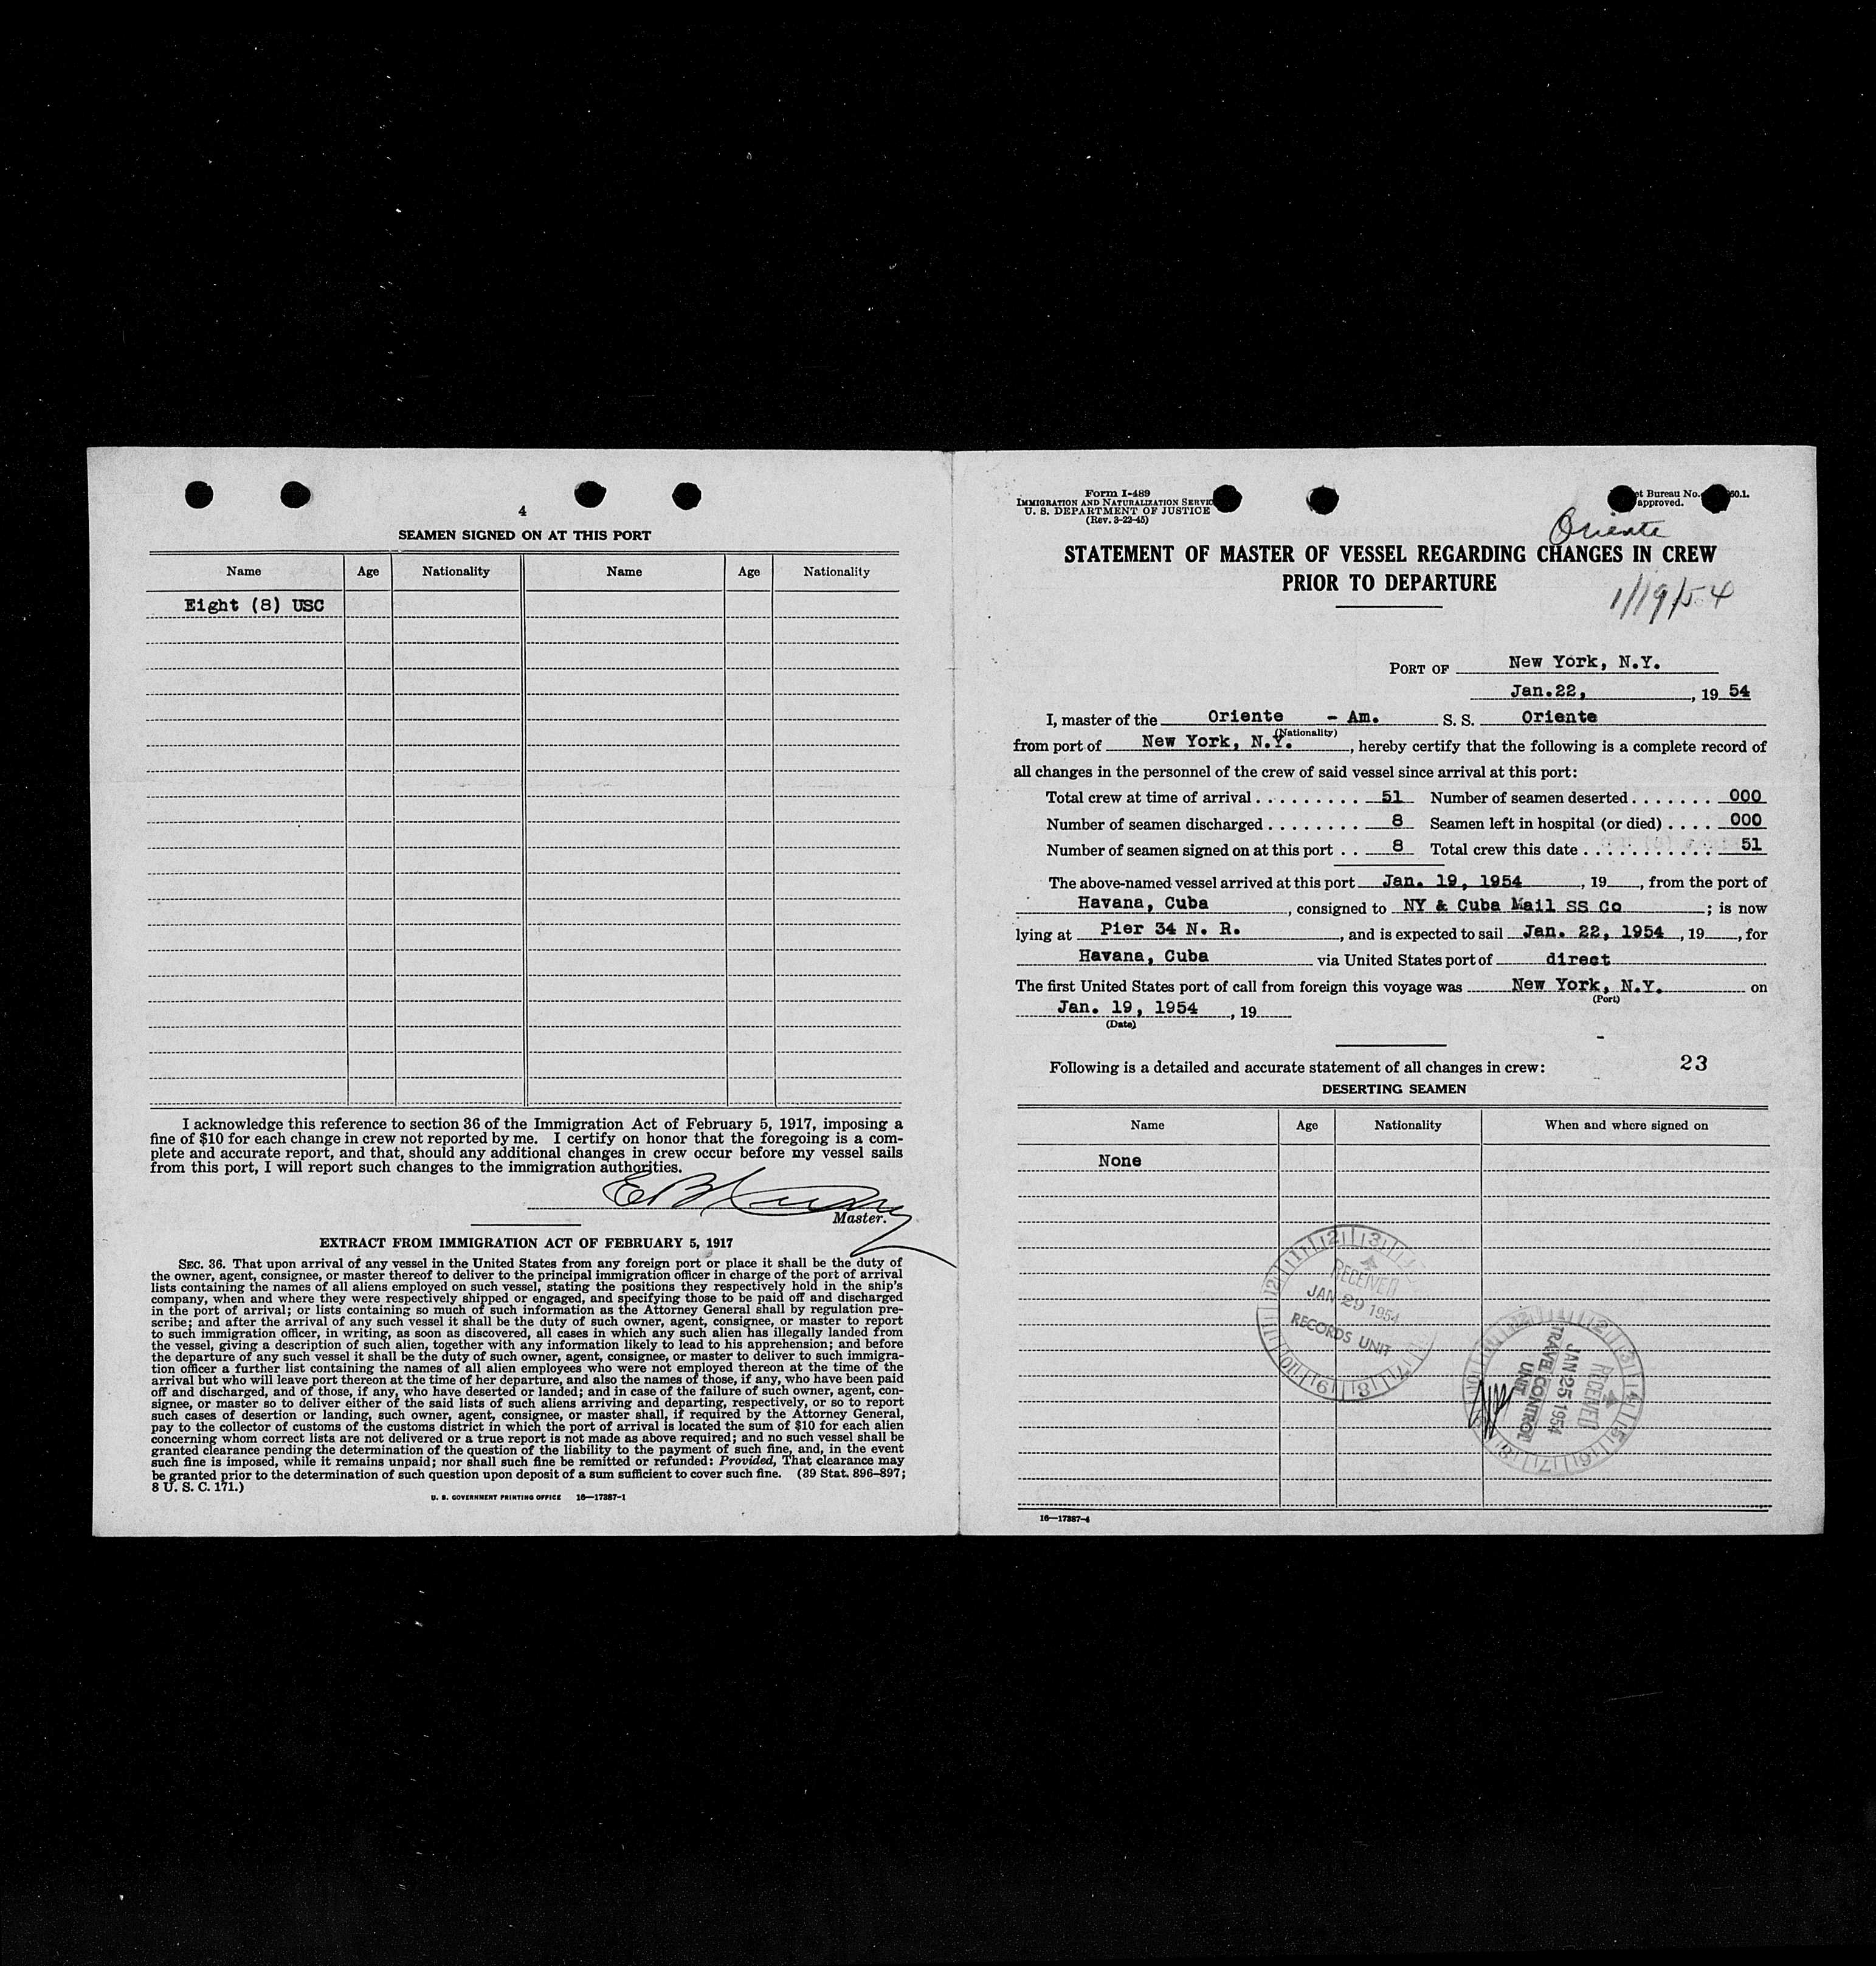 4
SEAMEN SIGNED ON AT THIS PORT
Name Age Nationality Name Age Nationality
Eight (8) USC
I acknowledge this reference to section 36 of the Immigration Act of February 5, 1917, imposing a
fine of $10 for each change in crew not reported by me. I certify on honor that the foregoing is a com-
plete and accurate report, and that, should any additional changes in crew occur before my vessel sails
from this port, I will report such changes to the immigration authorities.
Master.
EXTRACT FROM IMMIGRATION ACT OF FEBRUARY 5, 1917
SEC. 36. That upon arrival of any vessel in the United States from any foreign port or place it shall be the duty of
the owner, agent, consignee, or master thereof to deliver to the principal immigration officer in charge of the port of arrival
lists containing the names of all aliens employed on such vessel, stating the positions they respectively hold in the ship's
company, when and where they were respectively shipped or engaged, and specifying those to be paid off and discharged
in the port of arrival; or lists containing so much of such information as the Attorney General shall by regulation pre-
scribe; and after the arrival of any such vessel it shall be the duty of such owner, agent, consignee, or master to report
to such immigration officer, in writing, as soon as discovered, all cases in which any such alien has illegally landed from
the vessel, giving a description of such alien, together with any information likely to lead to his apprehension; and before
the departure of any such vessel it shall be the duty of such owner, agent, consignee, or master to deliver to such immigra-
tion officer a further list containing the names of all alien employees who were not employed thereon at the time of the
arrival but who will leave port thereon at the time of her departure, and also the names of those, if any, who have been paid
off and discharged, and of those, if any, who have deserted or landed; and in case of the failure of such owner, agent, con-
signee, or master so to deliver either of the said lists of such aliens arriving and departing, respectively, or so to report
such cases of desertion or landing, such owner, agent, consignee, or master shall, if required by the Attorney General,
pay to the collector of customs of the customs district in which the port of arrival is located the sum of $10 for each alien
concerning whom correct lists are not delivered or a true report is not made as above required; and no such vessel shall be
granted clearance pending the determination of the question of the liability to the payment of such fine, and, in the event
such fine is imposed, while it remains unpaid; nor shall such fine be remitted or refunded: Provided, That clearance may
be granted prior to the determination of such question upon deposit of a sum sufficient to cover such fine. (39 Stat. 896–897;
8 U. S. C. 171.)
U. S. GOVERNMENT PRINTING OFFICE 16—17387-1
Form I-489
IMMIGRATION AND NATURALIZATION SERVIC
U. S. DEPARTMENT OF JUSTICE
(Rev. 3-22-45)
t Bureau No. 60.1.
approved.
Oriente
STATEMENT OF MASTER OF VESSEL REGARDING CHANGES IN CREW
PRIOR TO DEPARTURE
1/19/54
PORT OF New York, N.Y.
Jan.22, , 19 54
I, master of the Oriente - Am. S. S. Oriente
(Nationality)
from port of New York, N.Y. , hereby certify that the following is a complete record of
all changes in the personnel of the crew of said vessel since arrival at this port:
Total crew at time of arrival . . . . . . . . . 51 Number of seamen deserted . . . . . . . 000
Number of seamen discharged . . . . . . . . 8 Seamen left in hospital (or died) . . . . 000
Number of seamen signed on at this port . . 8 Total crew this date . . . . . . . . . . . 51
The above-named vessel arrived at this port Jan. 19, 1954 , 19 , from the port of
Havana, Cuba , consigned to NY & Cuba Mail SS Co ; is now
lying at Pier 34 N. R. , and is expected to sail Jan. 22, 1954 , 19 , for
Havana, Cuba via United States port of direct
The first United States port of call from foreign this voyage was New York, N.Y. on
(Port)
Jan. 19, 1954 , 19
(Date)
Following is a detailed and accurate statement of all changes in crew: 23
DESERTING SEAMEN
Name Age Nationality When and where signed on
None
RECEIVED
JAN 29 1954
RECORDS UNIT
RECEIVED
JAN 25 1954
TRAVEL CONTROL
UNIT
16—17387-4